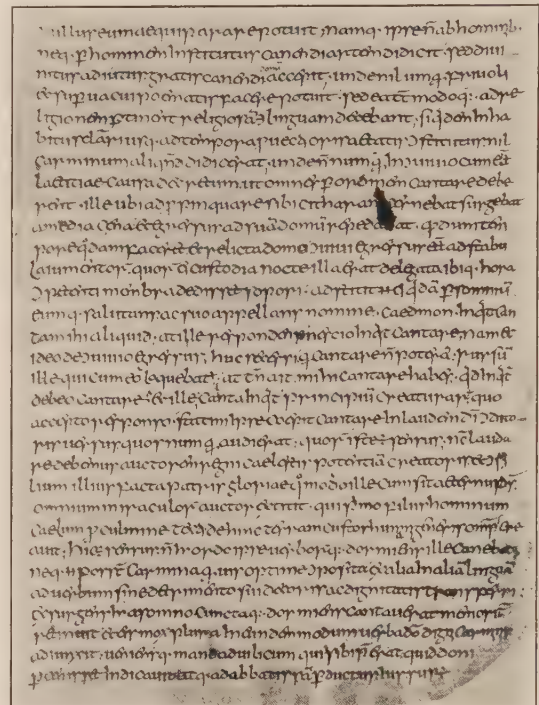 nullus eum aequiparare potuit, namq; ipse n̄ ab hominib·
neq; ꝑ hominem institutus canendi artem didicit· sed diui-
nitus adiutus gratis canendi donū accepit· unde nil umq̄ friuoli
& superuacui poematis facere potuit· sed ea tm̄modo q; ad re
ligionem ꝑtinent religiosā ei linguam decebant, siq̄dem in ha
bitu saeculari usq; ad tempora ꝓuectioris aetatis ↄstitutus nil
carminum aliq̄ndo didicerat, unde n̄numq̄ in conuiuio cum eēt
laetitiae causa decretum, ut omnes ꝑ ordinem cantare debe
rent, ille ubi adpropinquare sibi citharam cernebat surgebat
a media cena et egressus ad suā domū repedabat, q̄d dum tem
pore q̄dam faceret et relicta domo ↄuiuii egressus eēt ad stabu
la iumentor· quor· ei custodia nocte illa erat delegata ibiq; hora
ↄpetenti membra dedisset sopori· adstitit ei q̄dā ꝑ somniū
eumq; salutans ac suo appellans nomine, caedmon, inq̄t can
ta mihi aliquid, at ille respondens nescio inq̄t cantare, nam et
ideo de ↄuiuio egressus, huc secessi q; cantare n̄ poterā, rursū
ille qui cum eo loquebatur, at tn̄ ait, mihi cantare habes, q̄d inq̄t
debeo cantare & ille, canta inq̄t principiū creaturar· quo
accepto responso, statim ipse coepit cantare in laudem dī ↄdito
ris uersus quos numq̄ audierat, quor· iste ē sensus, nc̄ lauda
re debemus auctorem regni caelestis potentiā creatoris et ↄsi
lium illius facta patris gloriae quomodo ille cum sit aeternus ds̄
omnium miraculor· auctor extitit, qui primo filiis hominum
caelum ꝓ culmine tecti dehinc terram custos humani generis omnip̄s cre
auit, hic ē sensus n̄ h ordo ipse uerbor· q; dormiens ille canebat
neq; n̄ poss̄t carmina q̄uis optime ↄposita ex alia in aliā linguā
ad uerbum sine detrimento sui decoris ac dignitatis transferri·
exsurgens h a somno cuncta q; dormiens cantauerat memorit̄
retinuit et eis mox plura in eundem modum uerba dō digni carminis
adiunxit, ueniensq; mane ad uilicum qui sibi praeerat, quid doni
ꝑcepisset indicauit atq; ad abbatissā ꝑductus iussus ē